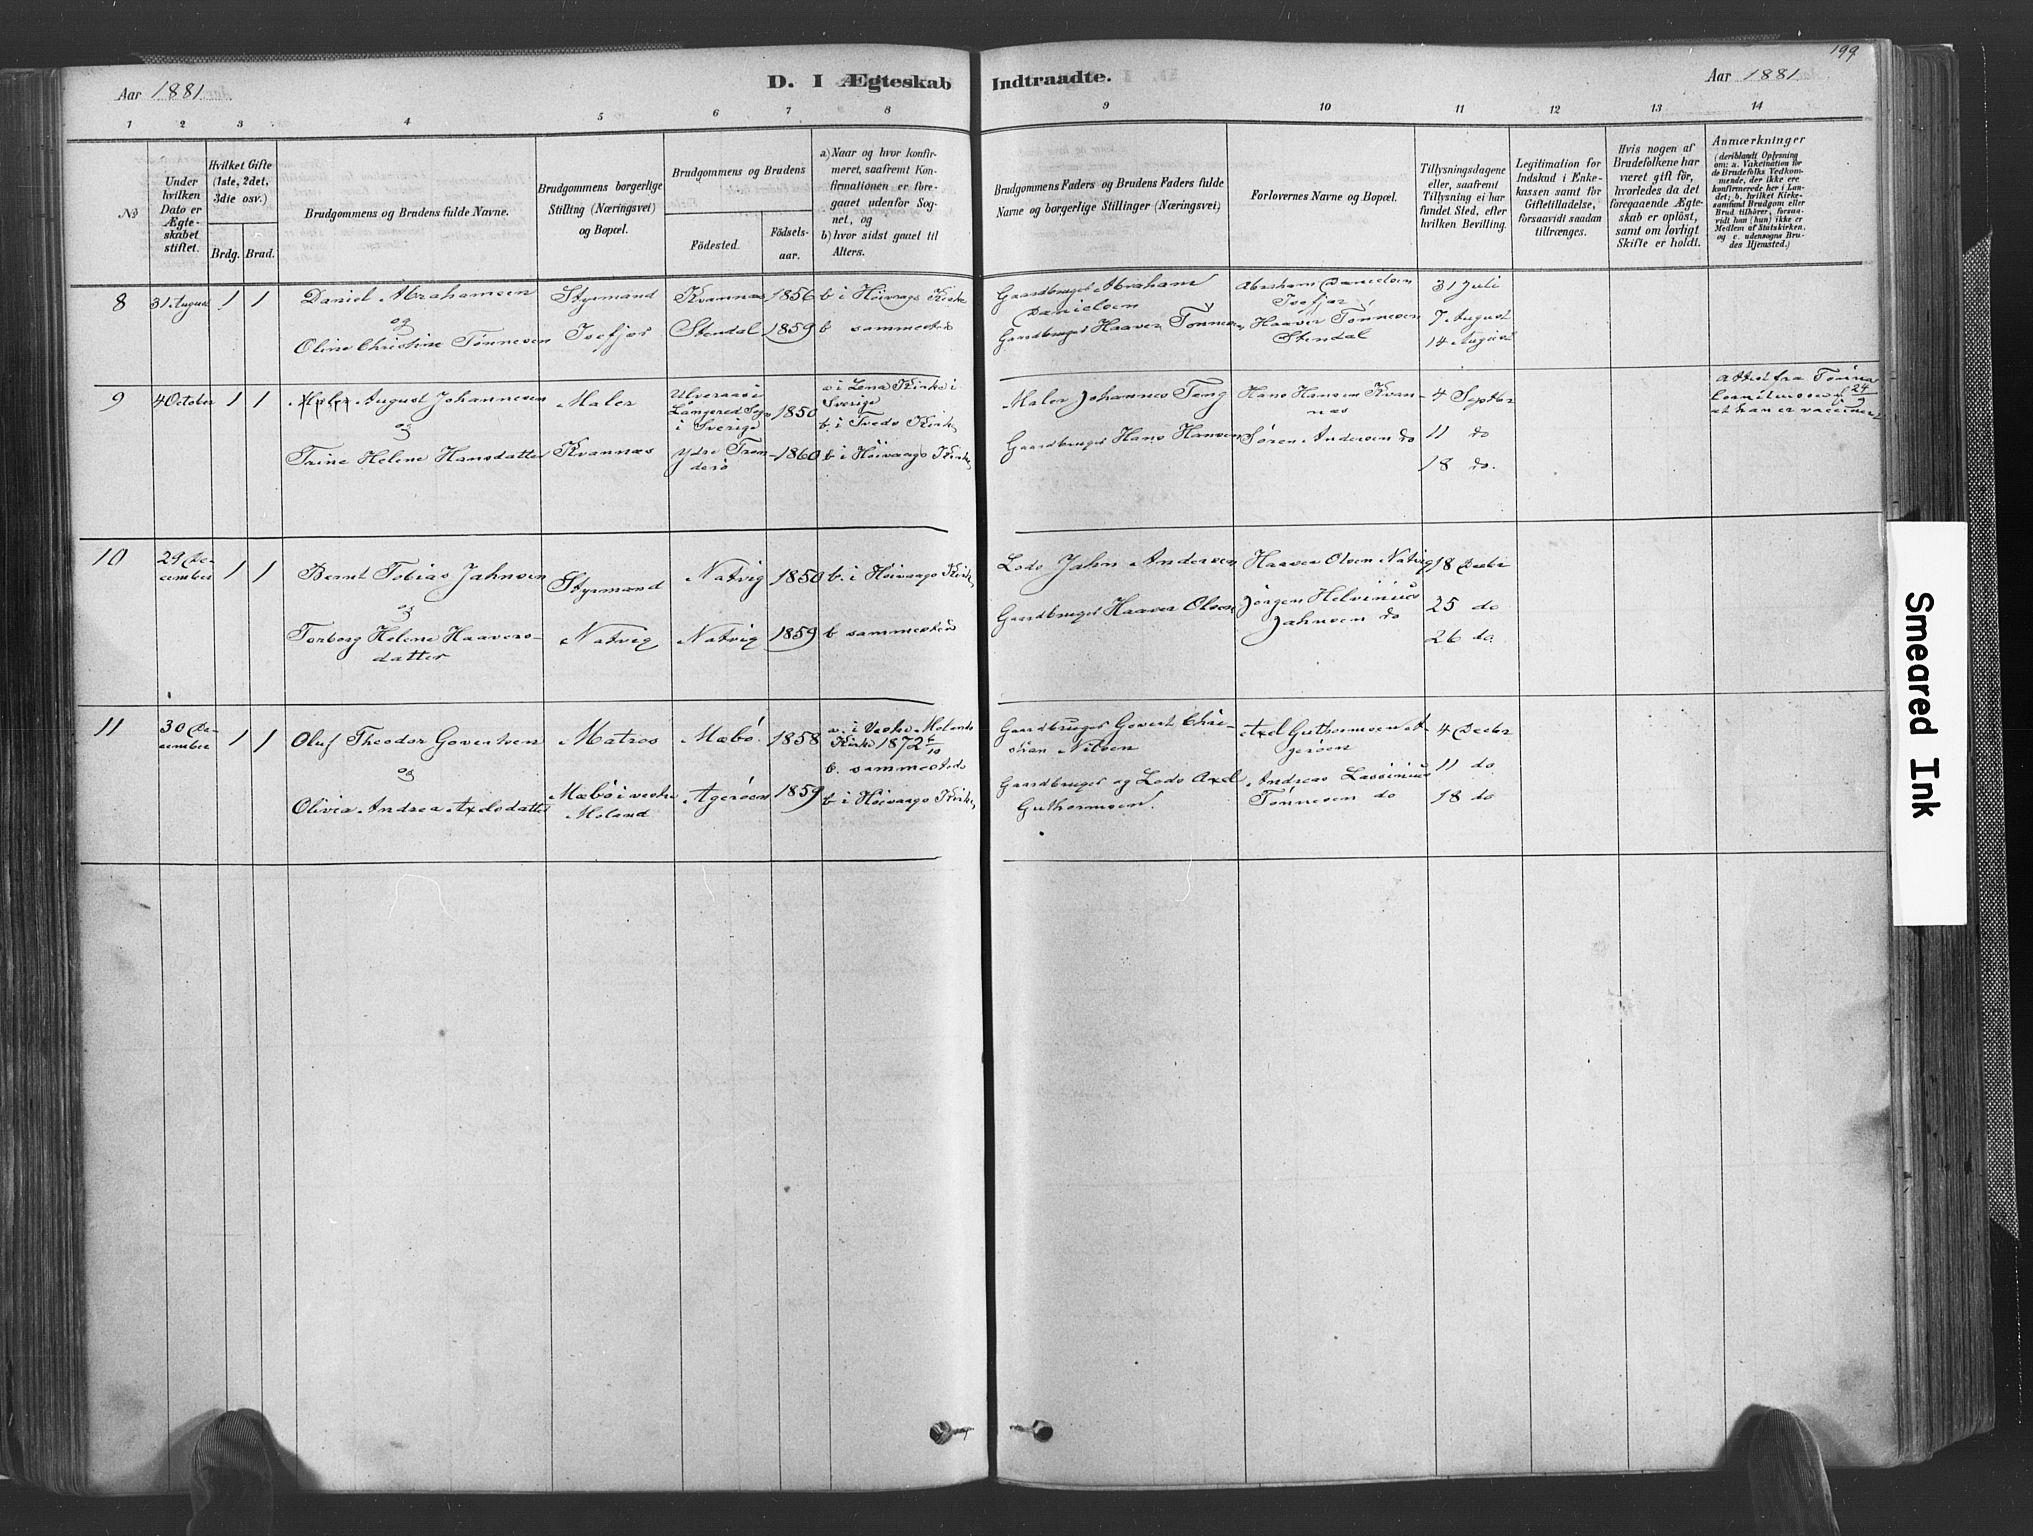 199
Aar 1881
D. I Ægteskab Indtraadte.
Aar 1881
1 2 3 4 5 6 7 8 9 10 11 12 13 14
No
Under
hvilken
Dato er
Ægte-
skabet
stiftet.
Hvilket Gifte
(1ste, 2det,
3die osv.)
Brdg. Brud.
Brudgommens og Brudens fulde Navne.
Brudgommens borgerlige
Stilling (Næringsvei)
og Bopæl.
Brudgommens og Brudens
Födested.
Födsels-
aar.
a) Naar og hvor konfir-
meret, saafremt Kon-
firmationen er fore-
gaaet udenfor Sog-
net, og
b) hvor sidst gaaet til
Alters.
Brudgommens Faders og Brudens Faders fulde
Navne og borgerlige Stillinger (Næringsvei)
Forlovernes Navne og Bopæl.
Tillysningsdagene
eller, saafremt
Tillysning ei har
fundet Sted, efter
hvilken Bevilling.
Legitimation for
Indskud i Enke-
kassen samt for
Giftetilladelse,
forsaavidt saadan
tiltrænges.
Hvis nogen af
Brudefolkene har
været gift för,
hvorledes da det
foregaaende Ægte-
skab er oplöst,
samt om lovligt
Skifte er holdt.
Anmærkninger
(deriblandt Oplysning
om: a. Vakcination for
de Brudefolks Vedkom-
mende, der ikke ere
konfirmerede her i Lan-
det; b. hvilket Kirke-
samfund Brudgom eller
Brud tilhörer, forsaa-
vidt han (hun) ikke er
Medlem af Statskirken,
og c. udensogns Bru-
des Hjemsted.)
8
31 August
1 1
Daniel Abrahamsen
og
Oline Christine Tønnesen
Styrmand
Isefjær
Kvannæs
Stendal
1856
1859
b i Høivaags Kirke
b sammesteds
Gaardbruger Abraham
Danielsen
Gaardbruger Haaver Tønnesen
Abraham Danielsen
Isefjær
Haaver Tønnesen
Stendal
31 Juli
7 August
14 August
9
4 October
1 1
August Johannesen
og
Trine Helene Hansdatter
Maler
Kvannæs
Ulveraas i
Langered Sogn
i Sverige
Ydre Trøn-
derø
1850
1860
a i Lena Kirke i
Sverige
b. i Tveds Kirke
b i Høivaags Kirke
Maler Johannes Teng
Gaardbruger Hans Hansen
Hans Hansen Kvan-
næs
Søren Andersen do
4 Septbr
11 do
18 do.
Attest fra Tønnes
24/9
at han er vaccineret
10
29 De-
cember
1 1
Bernt Tobias Jahnsen
og
Torborg Helene Haavers-
datter
Styrmand
Natvig
Natvig
Natvig
1850
1859
b. i Høivaags Kirke
b sammesteds
Lods Jahn Andersen
Gaardbruger Haaver Olsen
Haaver Olsen Natvig
Jørgen Helvinius
Jahnsen do
18 Decbr
25 do
26 do
11
30 De-
cember
1 1
Oluf Theodor Govertsen
og
Olivia Andrea Axelsdatter
Matros
Mæbø i vestre
Moland
Mæbø.
Agerøen
1858
1859
a. i Vestre Molands
Kirke 1872 6/10
b. sammesteds
b i Høivaags Kirke
Gaardbruger Govert Chri-
stian Nilsen
Gaardbruger og Lods Axel
Guthormsen.
Axel Guthormsen A-
gerøen
Andreas Lassinius
Tønnesen do
4 Decbr
11 do
18 do
Smeared Ink